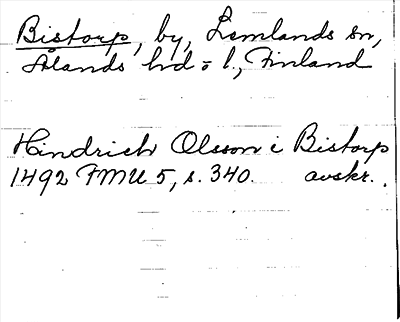 Bistorp, by, Lemlands sn,
Ålands hd o l., Finland
Hindrich Olsson i Bistorp
1492 FMU 5, s. 340. avskr.